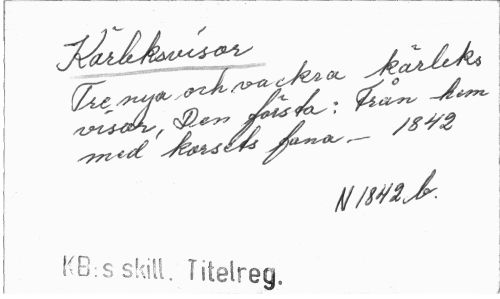 Kärleksvisor
Tre nya och vackra kärleks
visor, Den första: Från hem
med korsets fana. – 1842
N 1842 b.
KB:s skill. Titelreg.